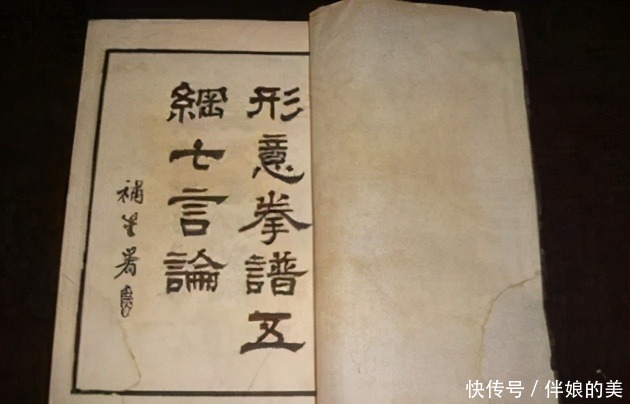 形意拳譜五
綱七言論
補笙署
快传号／伴娘的美